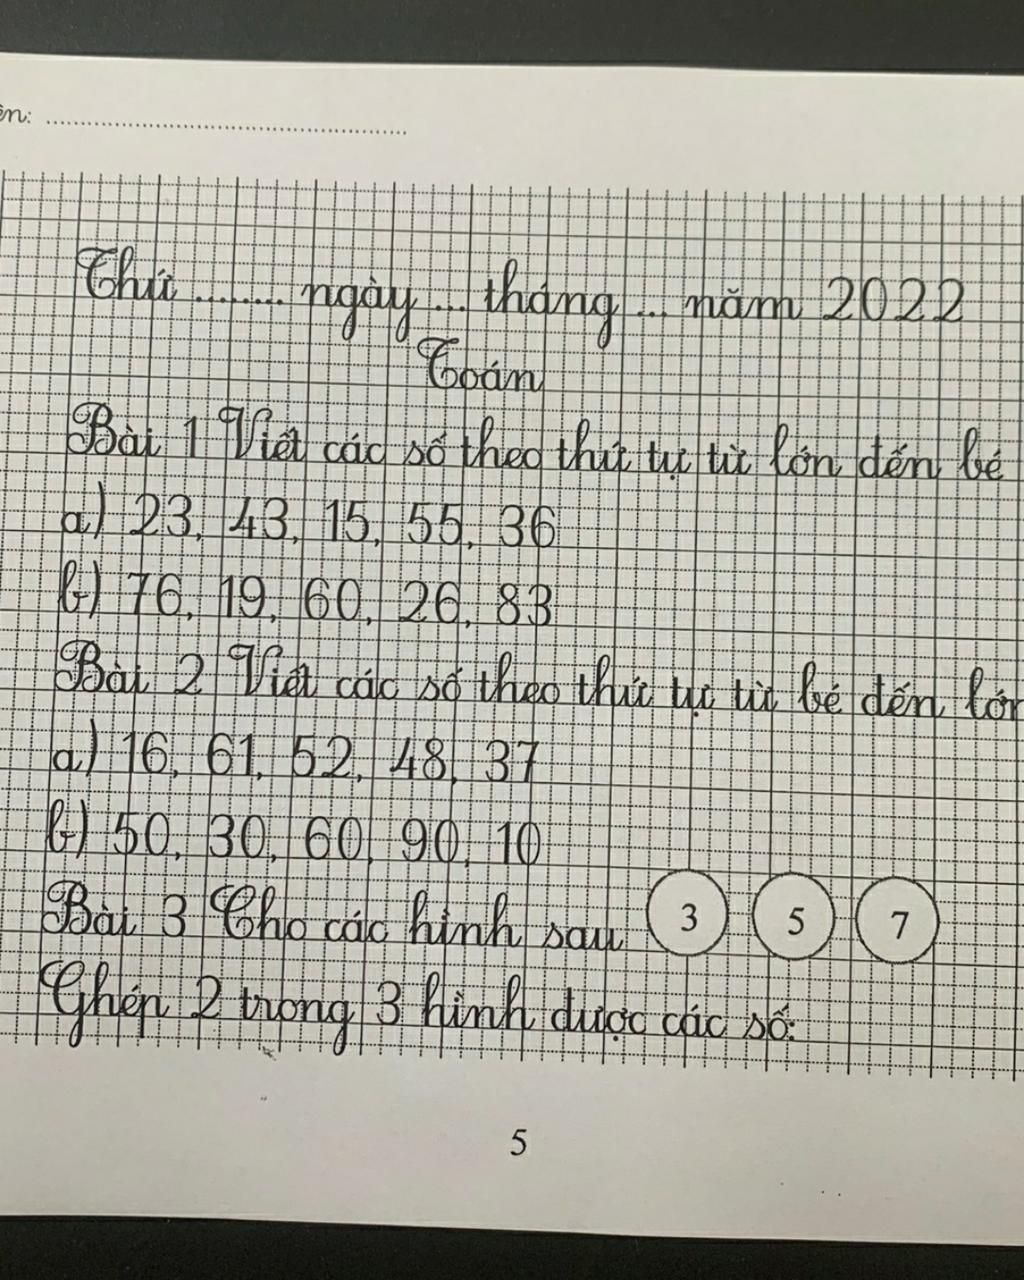 ên: ........................................................
Thứ ........ ngày ... tháng ... năm 2022
Toán
Bài 1 Viết các số theo thứ tự từ lớn đến bé
a) 23, 43, 15, 55, 36
b) 76, 19, 60, 26, 83
Bài 2 Viết các số theo thứ tự từ bé đến lớn
a) 16, 61, 52, 48, 37
b) 50, 30, 60, 90, 10
Bài 3 Cho các hình sau 3 5 7
Ghép 2 trong 3 hình được các số:
5